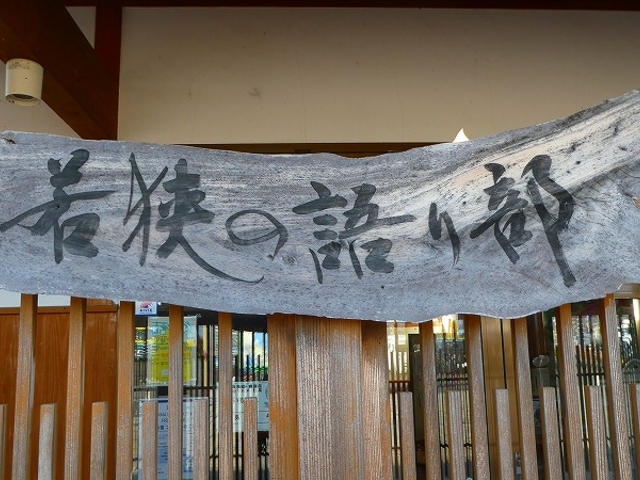 若狭の語り部